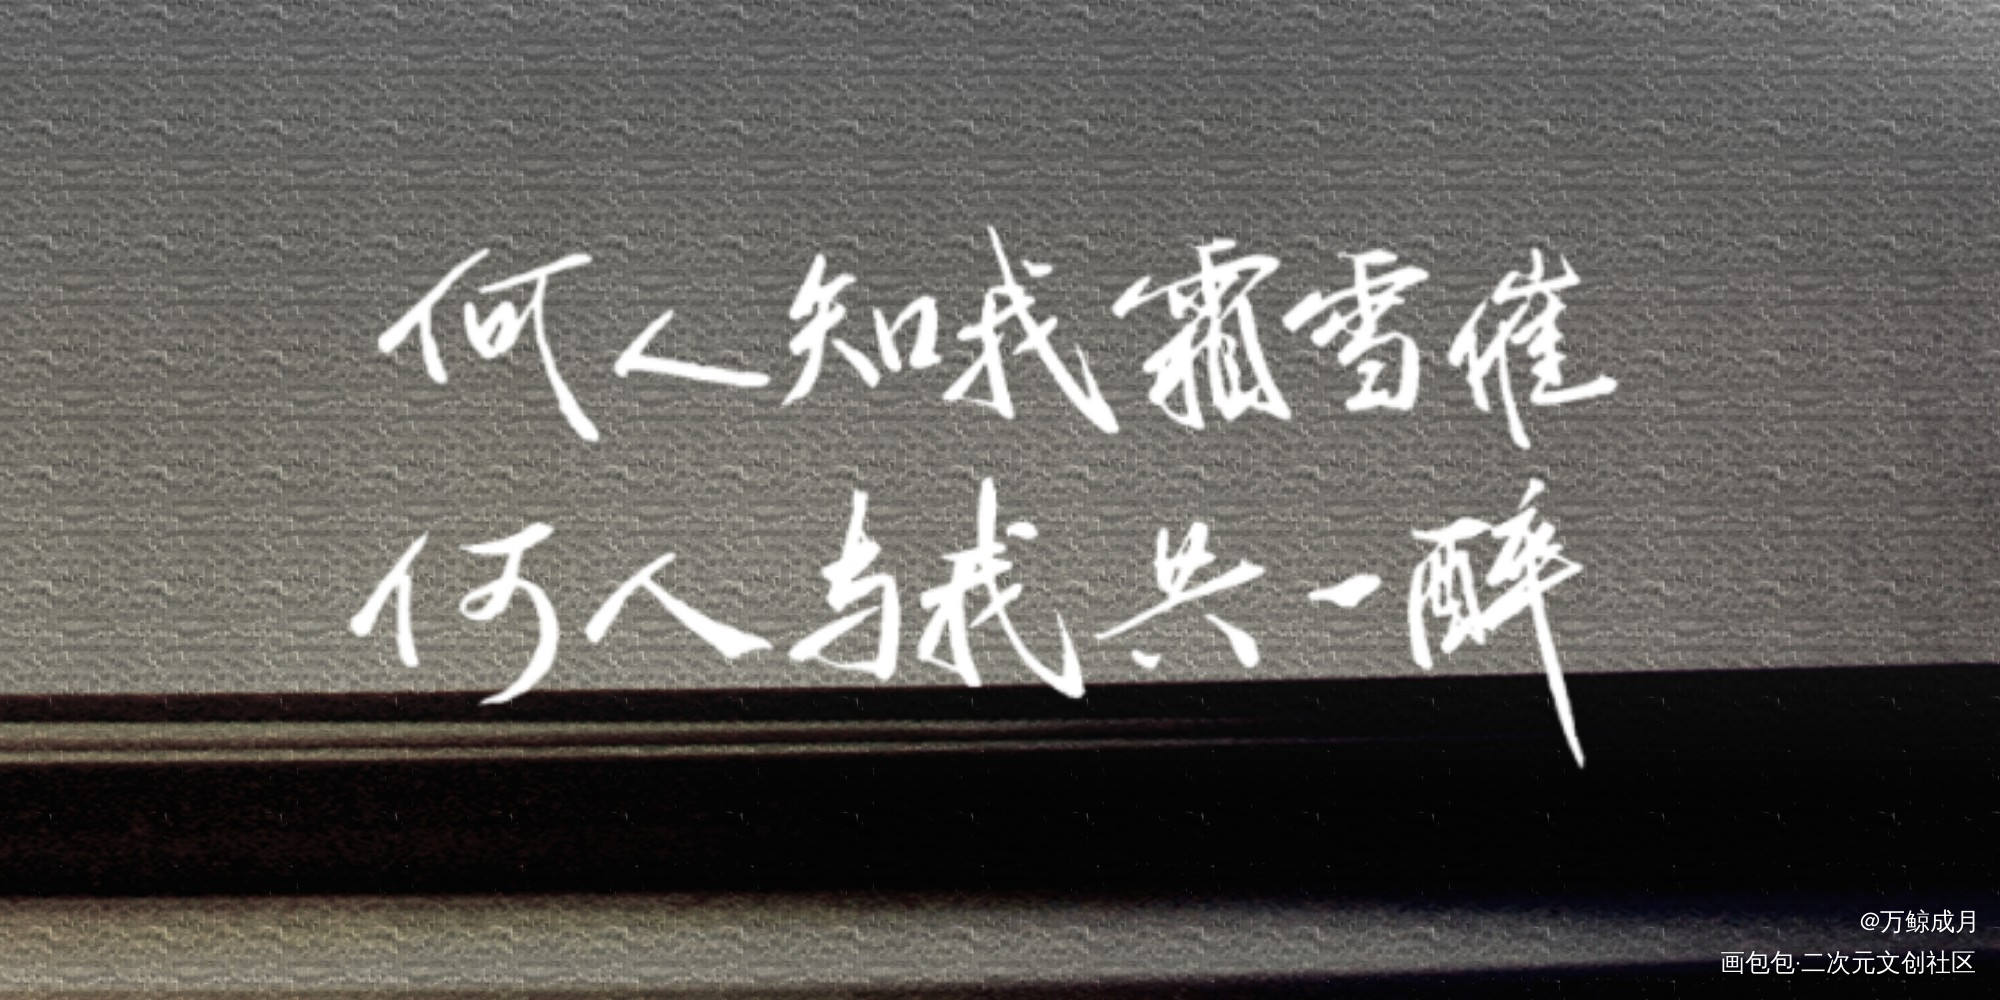 何人知我霜雪催
何人与我共一醉
@万鲸成月
画包包·二次元文创社区